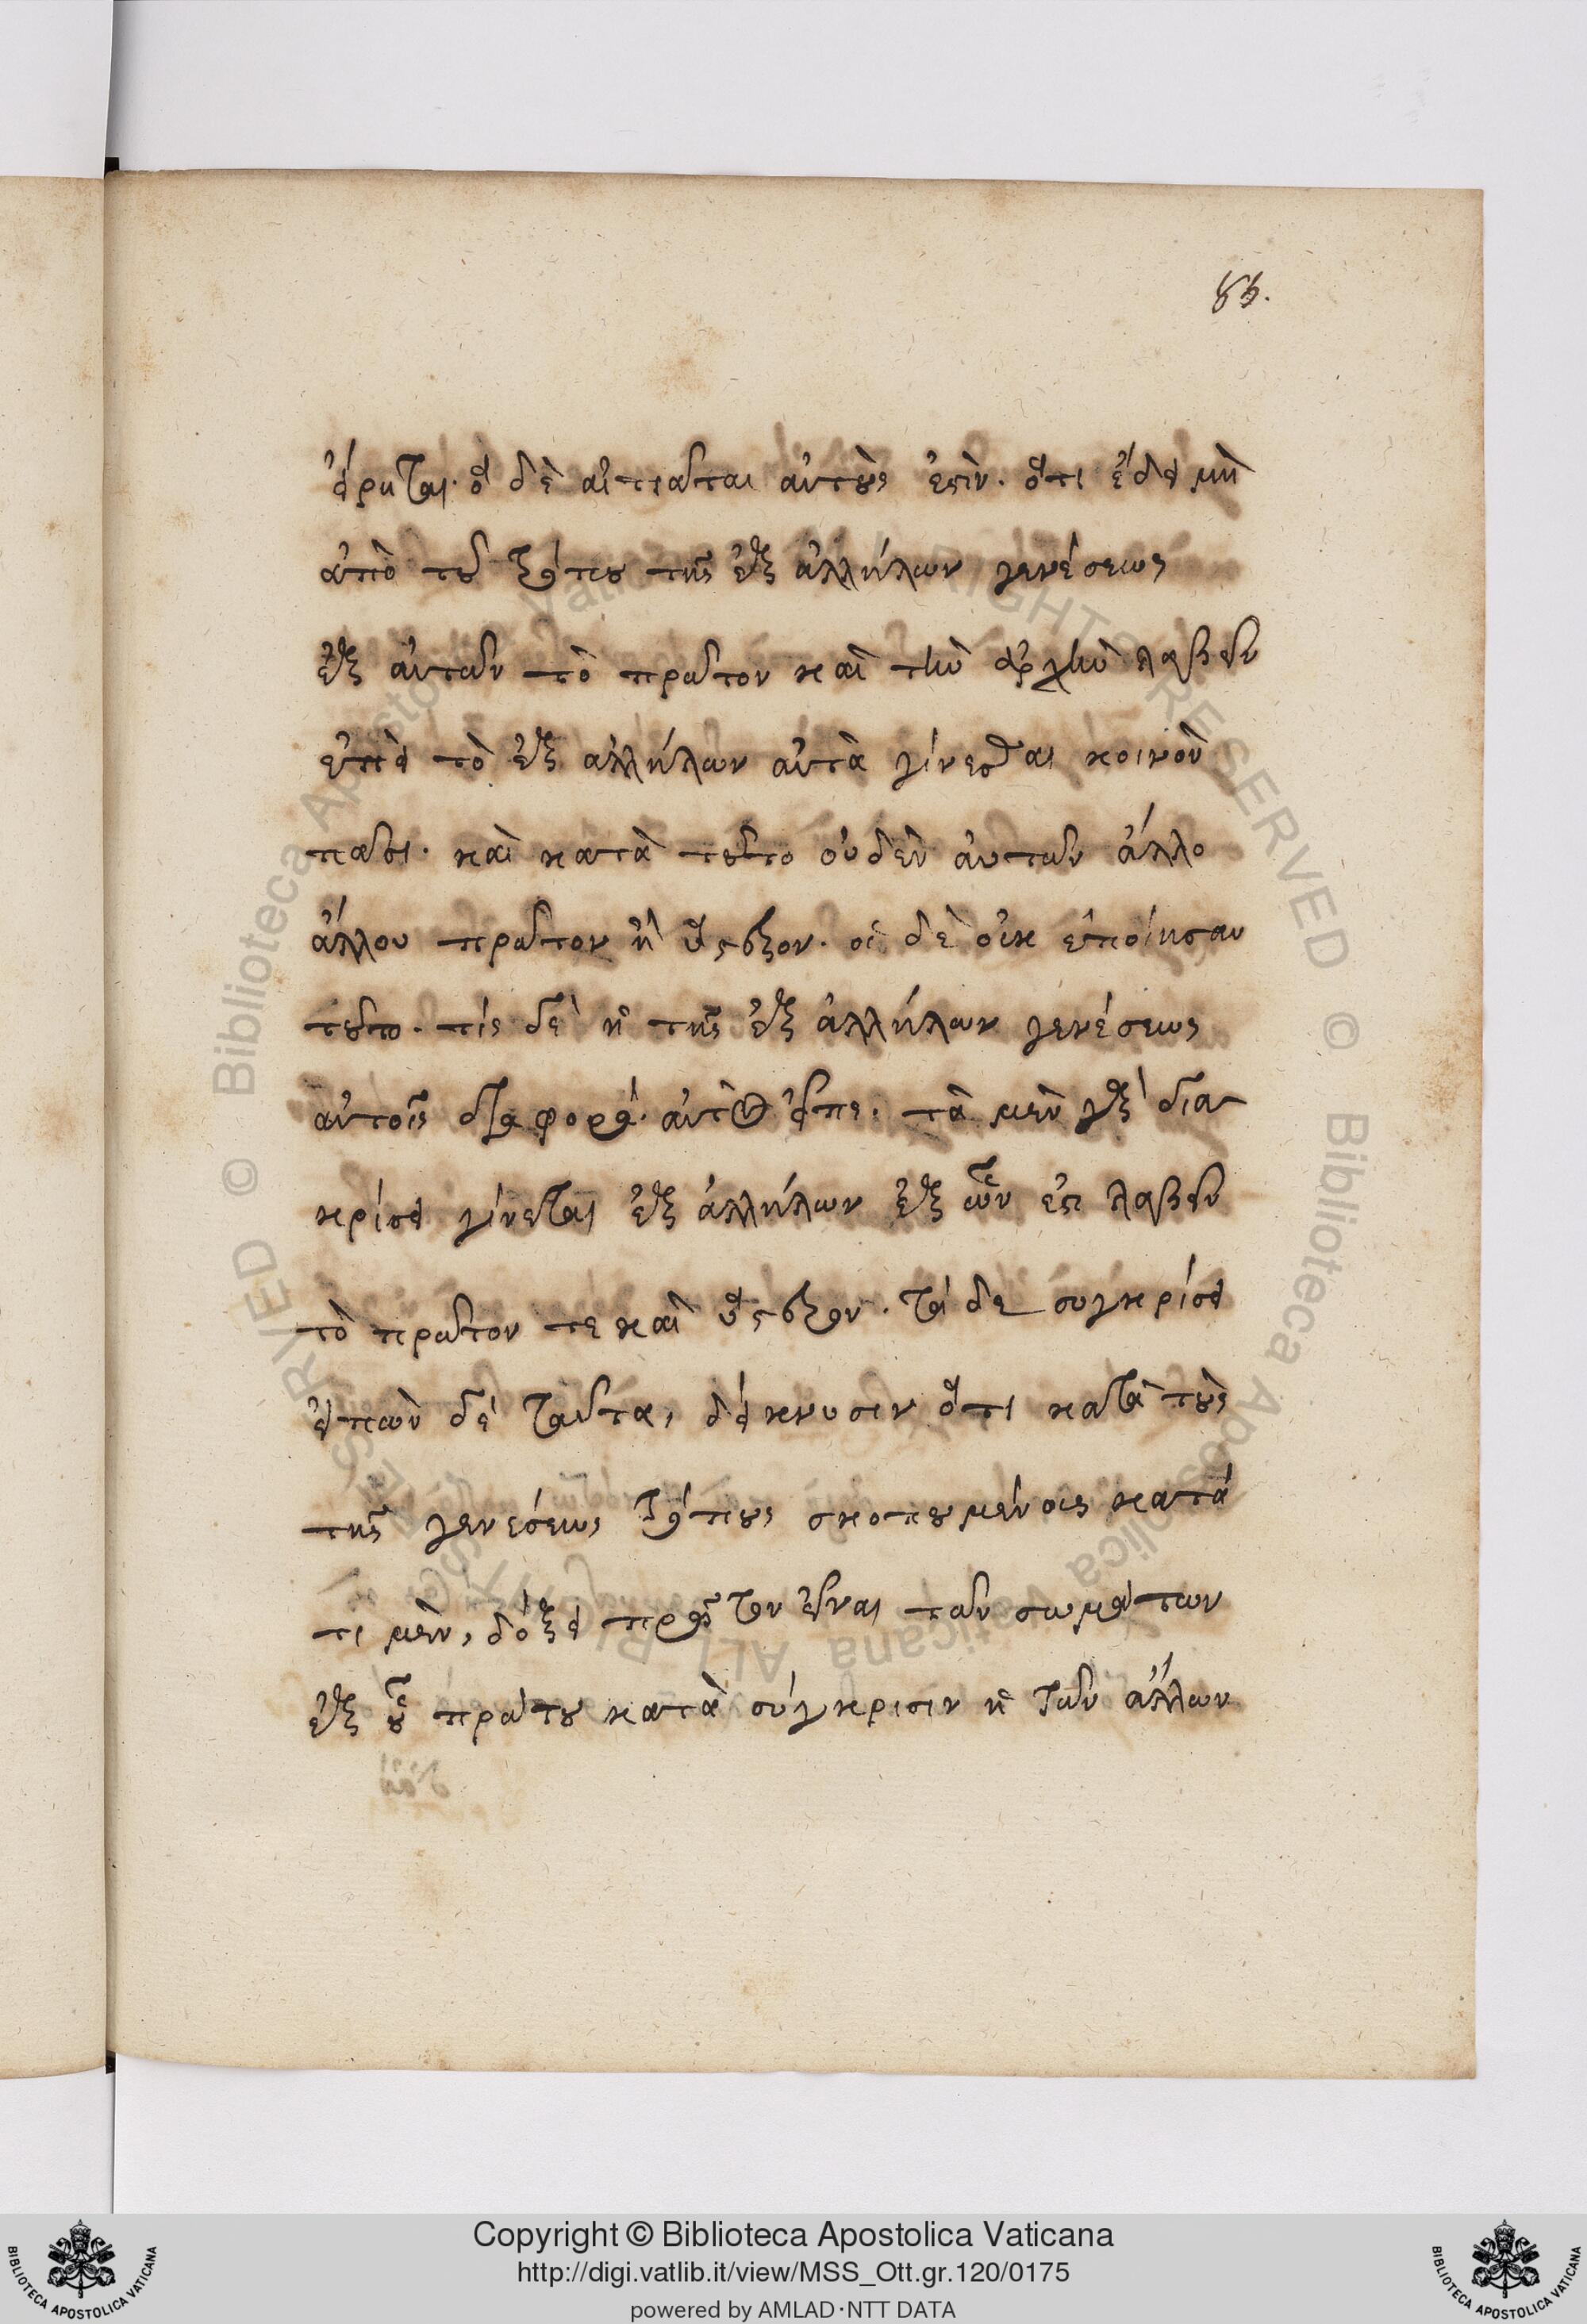 85.
εἴρηται. ὃ δὲ αἰτιᾶται αὐτοὺς ἐστὶν. ὅτι ἔδει μὴ
ἀπὸ τοῦ τρόπου τῆς ἐξ ἀλλήλων γενέσεως
ἐξ αὐτῶν τὸ πρῶτον καὶ τὴν ἀρχὴν λαβεῖν
ἐπεὶ τὸ ἐξ ἀλλήλων αὐτὰ γίνεσθαι κοινὸν
πᾶσι. καὶ κατὰ τοῦτο οὐδὲν αὐτῶν ἄλλο
ἄλλου πρῶτον ἢ ὕστερον. οἱ δὲ οὐκ ἐποίησαν
τοῦτο. τίς δὲ ἡ τῆς ἐξ ἀλλήλων γενέσεως
αὐτοῖς διαφορά. αὐτὸς εἶπε. τὰ μὲν γὰρ δια
κρίσει γίνεται ἐξ ἀλλήλων ἐξ ὧν ἐστι λαβεῖν
τὸ πρῶτον τε καὶ ὕστερον. τὰ δε συγκρίσει
εἰπὼν δὲ ταῦτα, δείκνυσιν ὅτι κατὰ τοὺς
τῆς γενέσεως τρόπους σκοπουμένοις κατά
τι μὲν, δόξει πρῶτον εἶναι τῶν σωμάτων
ἐξ οὗ πρώτου κατὰ σύγκρισιν ἡ τῶν ἄλλων
Copyright © Biblioteca Apostolica Vaticana
http://digi.vatlib.it/view/MSS_Ott.gr.120/0175
powered by AMLAD·NTT DATA